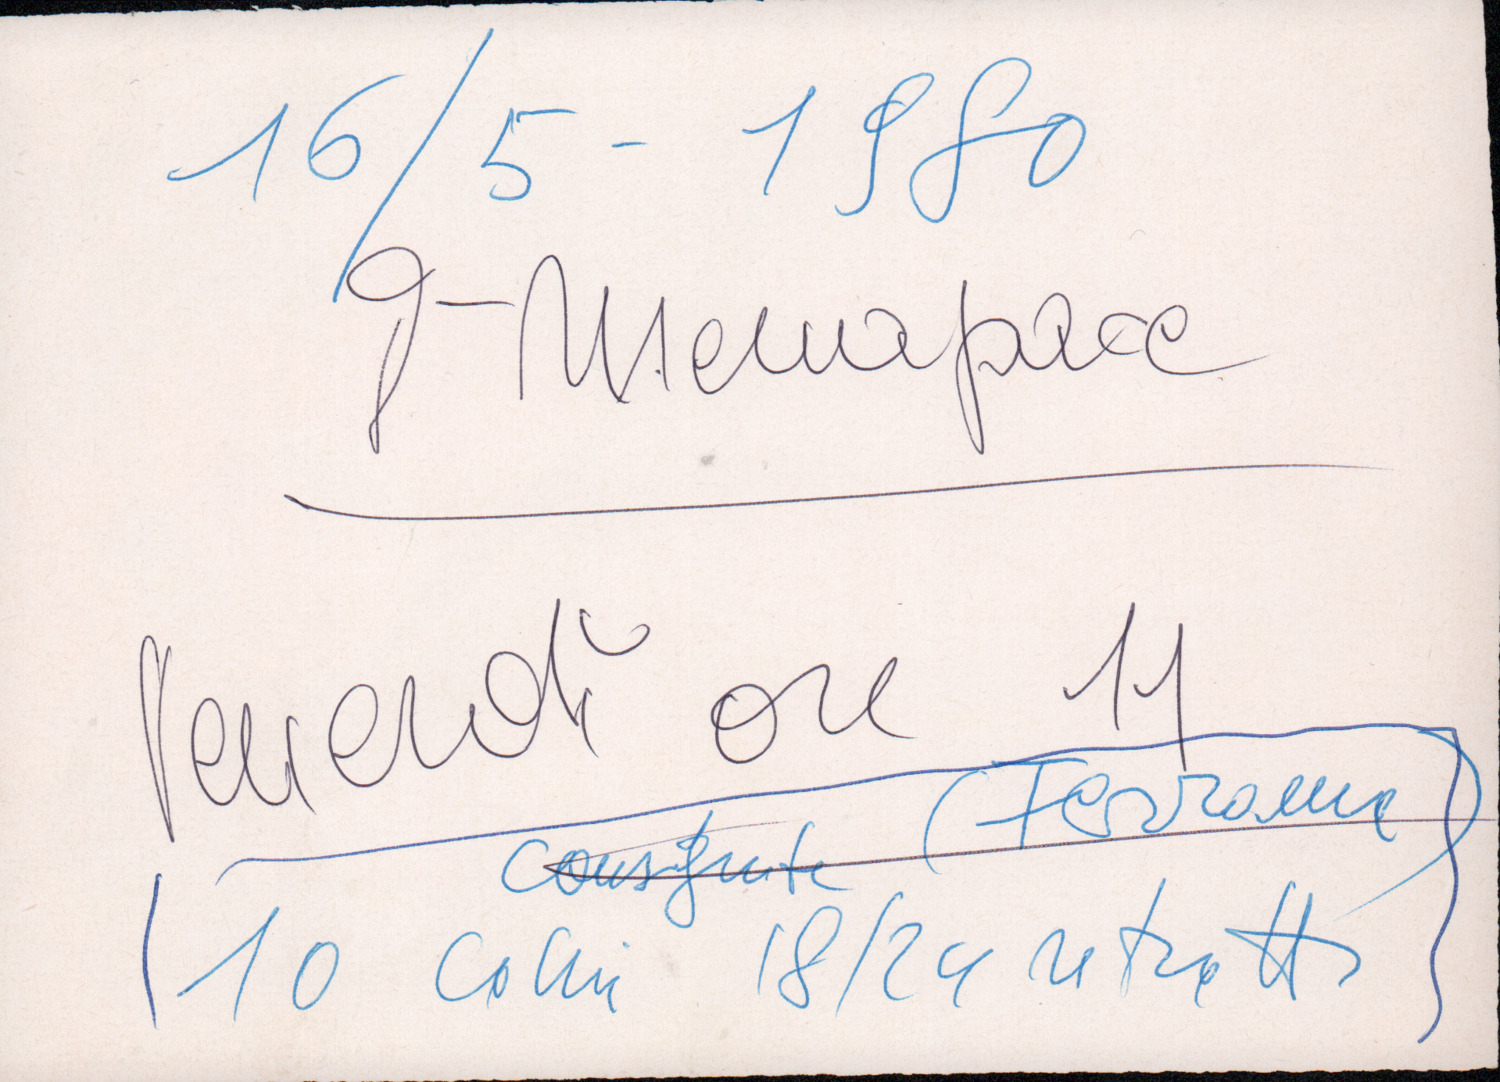 16/5 - 1980
J - Menapace
Venerdì ore 11
(Ferrania)
consegnate
10 colori 18/24 ritratti